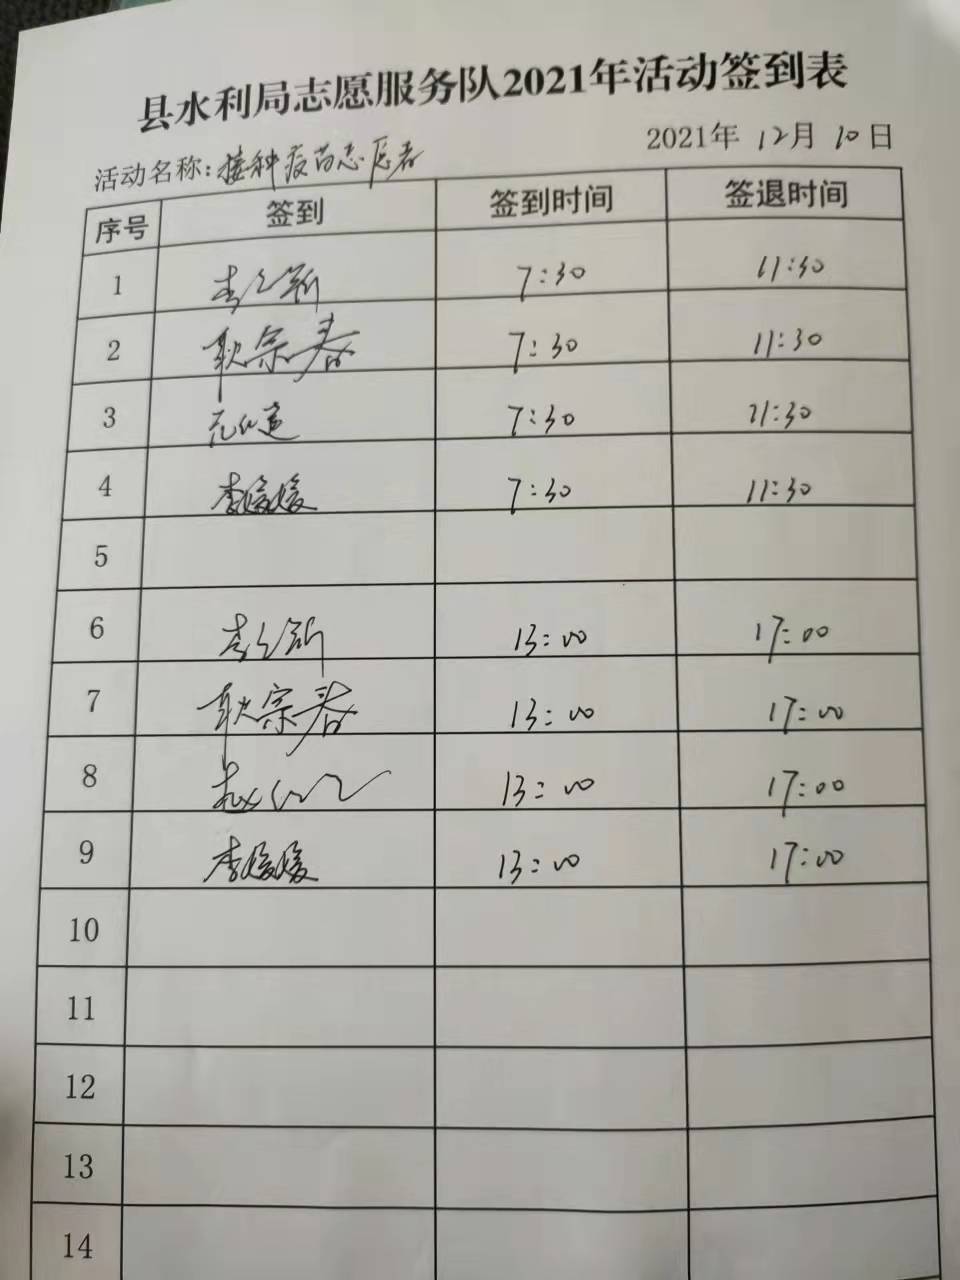 县水利局志愿服务队2021年活动签到表
活动名称:接种疫苗志愿者 2021年 12月 10日
序号 签到 签到时间 签退时间
1 7:30 11:30
2 耿宗春 7:30 11:30
3 7:30 11:30
4 李媛媛 7:30 11:30
5
6 13:00 17:00
7 耿宗春 13:00 17:00
8 13:00 17:00
9 李媛媛 13:00 17:00
10
11
12
13
14